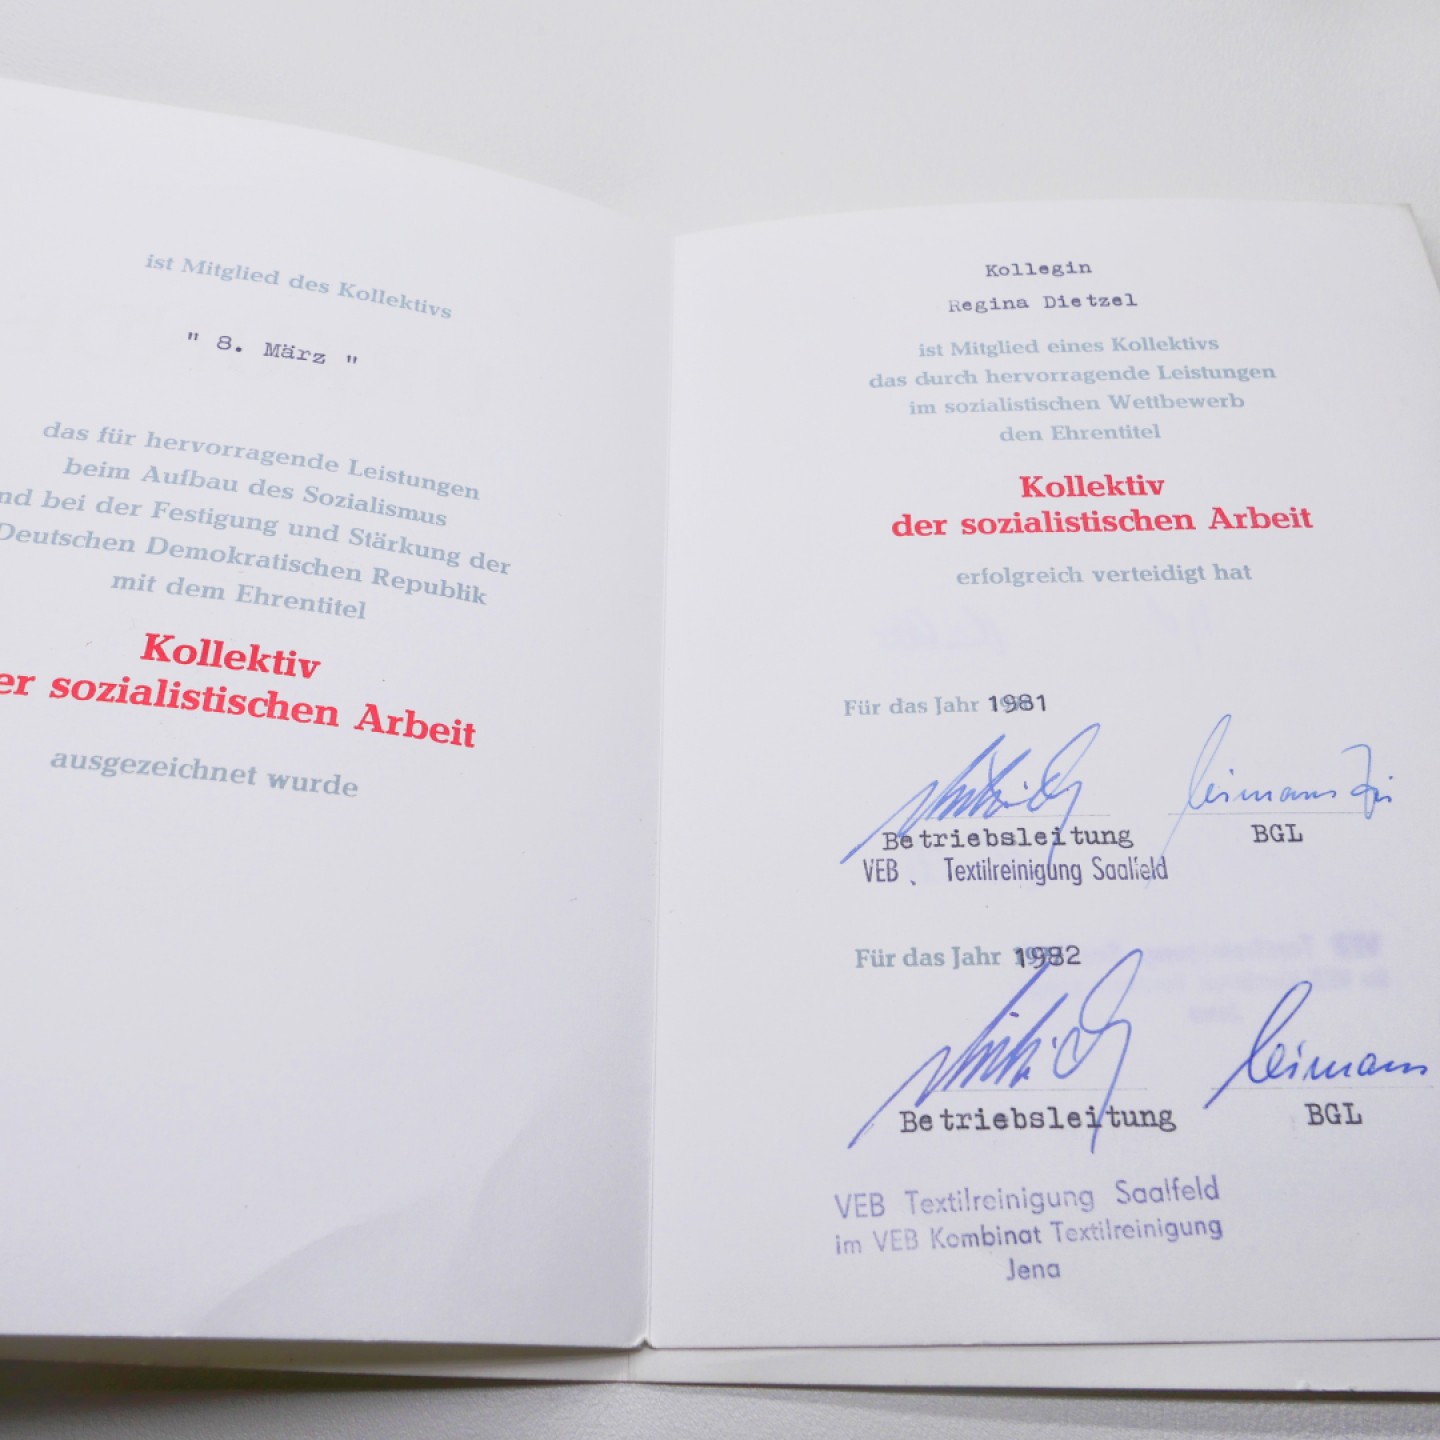 ist Mitglied des Kollektivs
" 8. März "
das für hervorragende Leistungen
beim Aufbau des Sozialismus
nd bei der Festigung und Stärkung der
Deutschen Demokratischen Republik
mit dem Ehrentitel
Kollektiv
er sozialistischen Arbeit
ausgezeichnet wurde
Kollegin
Regina Dietzel
ist Mitglied eines Kollektivs
das durch hervorragende Leistungen
im sozialistischen Wettbewerb
den Ehrentitel
Kollektiv
der sozialistischen Arbeit
erfolgreich verteidigt hat
Für das Jahr 1981
Betriebsleitung BGL
VEB Textilreinigung Saalfeld
Für das Jahr 1982
Betriebsleitung BGL
VEB Textilreinigung Saalfeld
im VEB Kombinat Textilreinigung
Jena